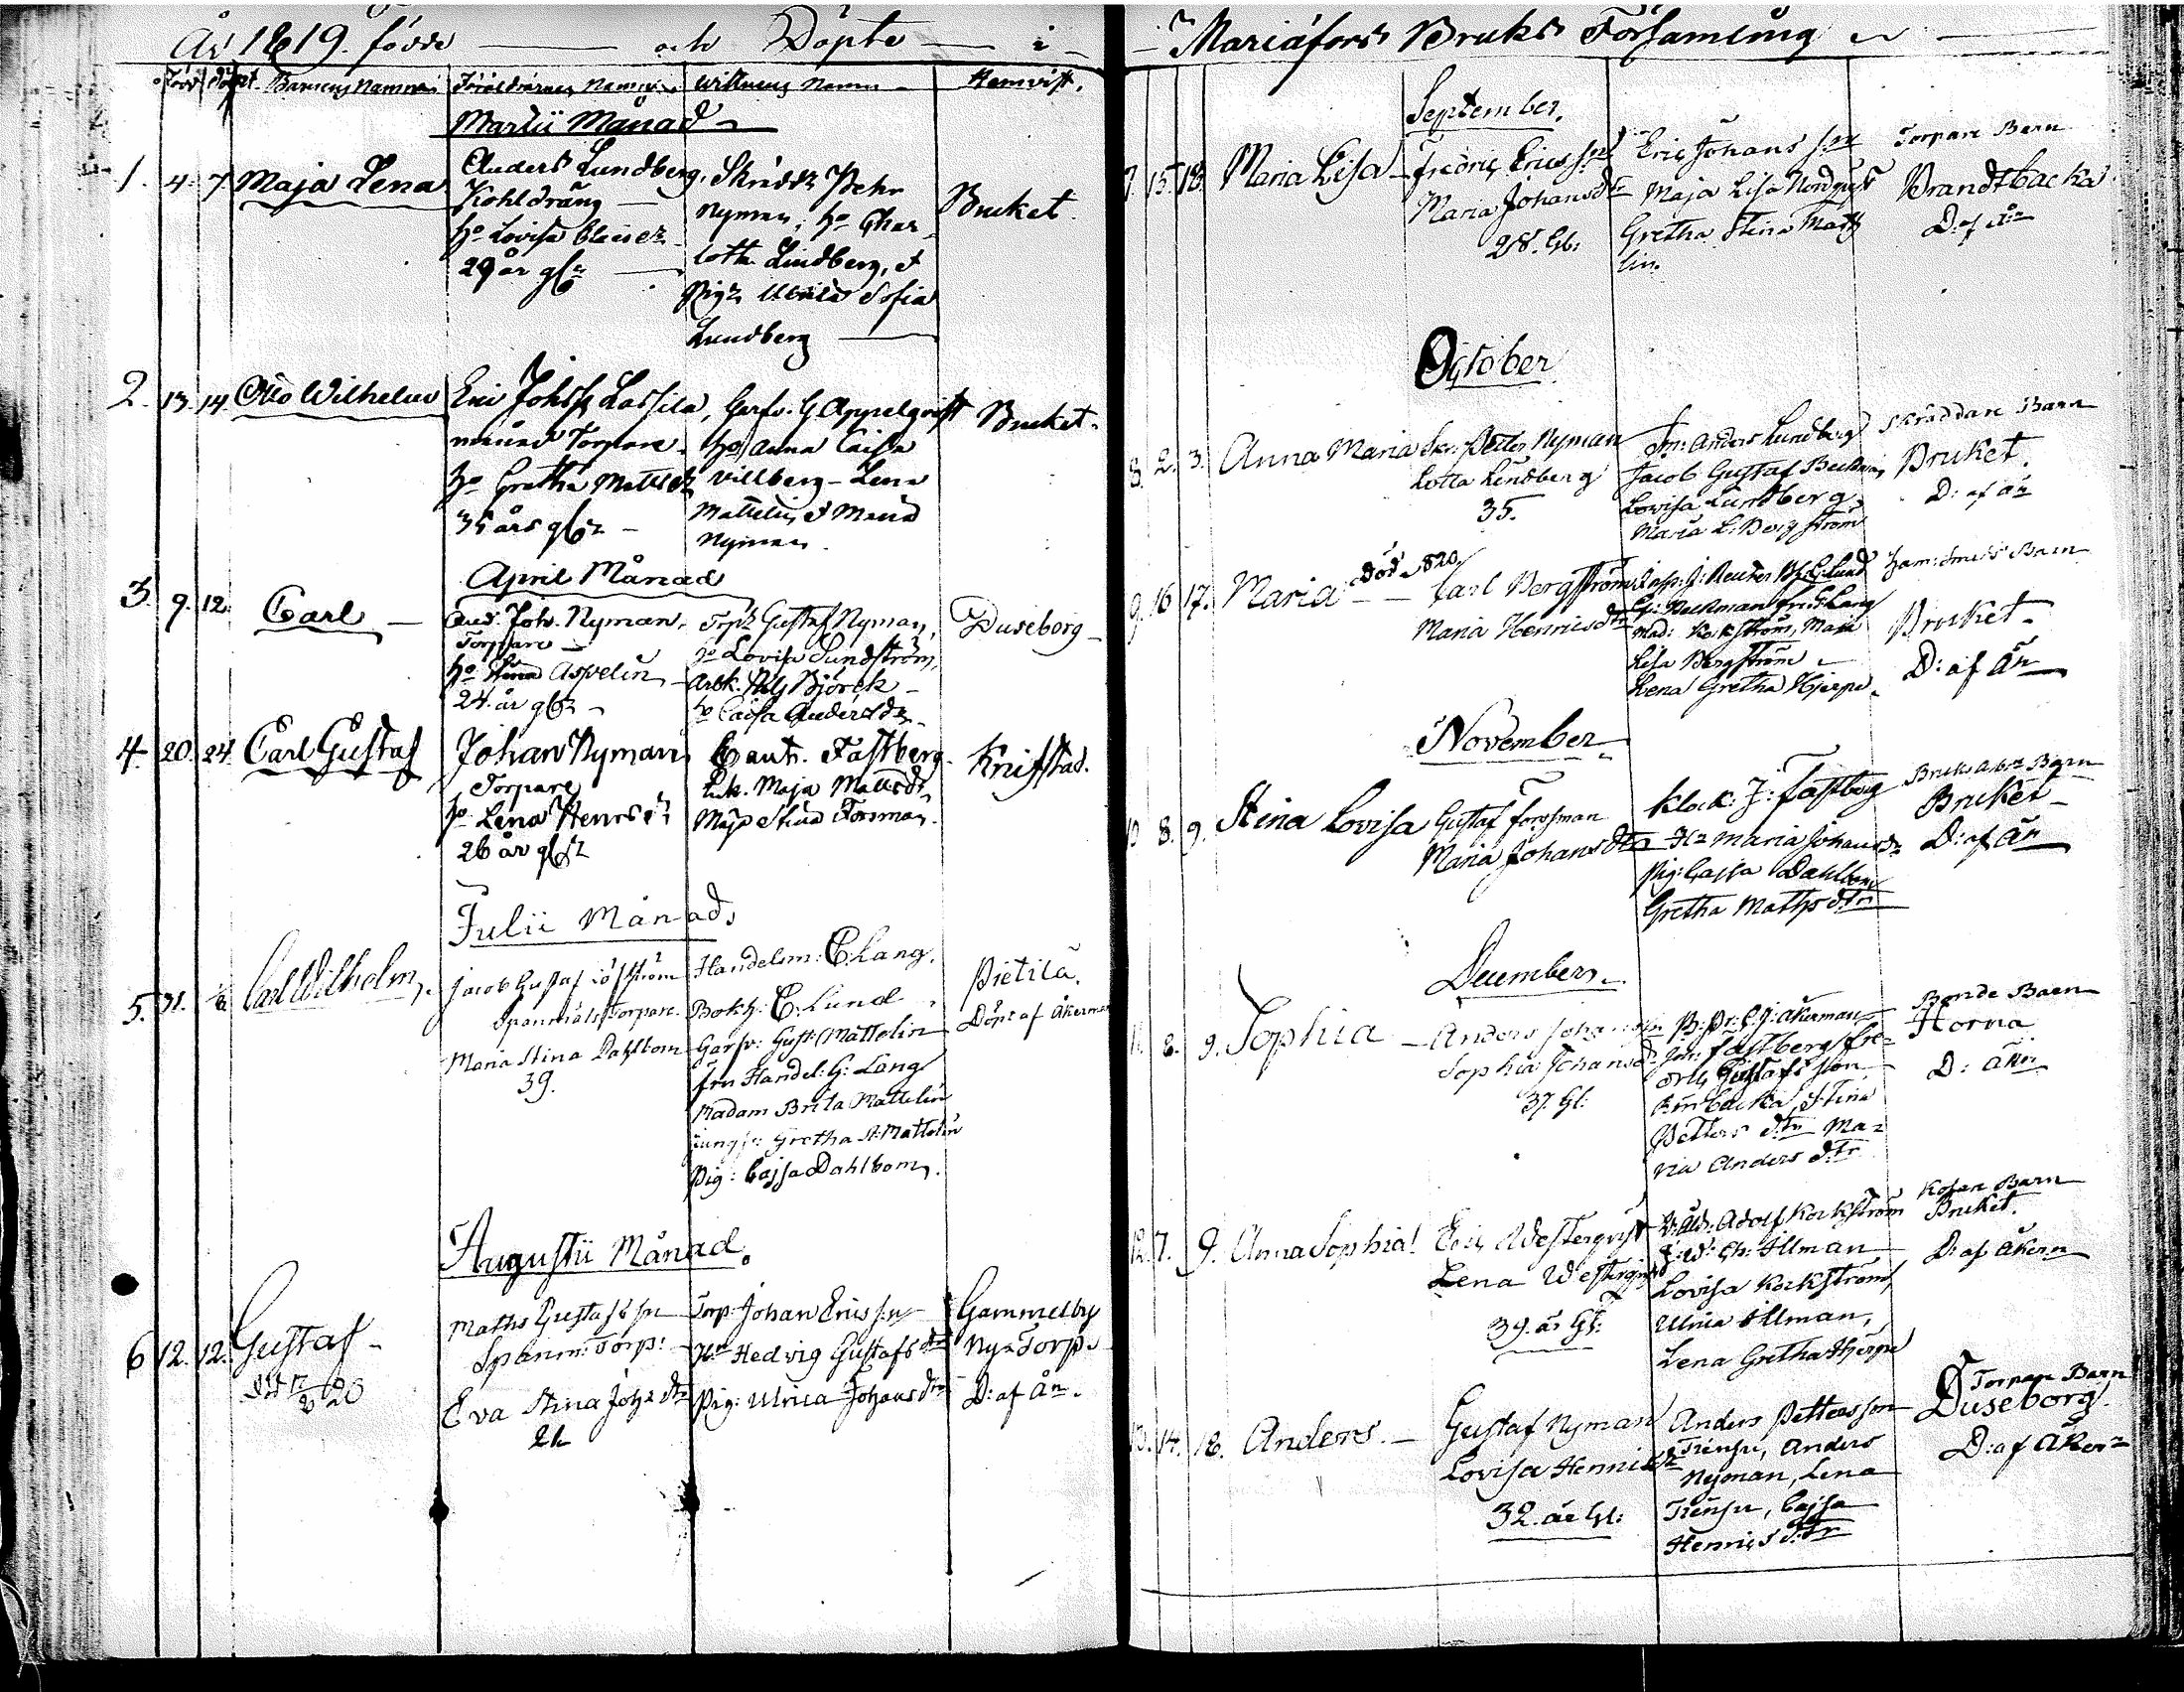 År 1819. födde — och Döpte — i —
Född Döpt. Barnens Namn Föräldrarnas Namn Wittnens Namn Hemvist.
Martii Månad
1. 4. 7 Maja Lena
Anders Lundberg,
Kohldräng —
ho Lovisa
29 år glr
Skrädd Pehr
Nyman; ho Char-
lotta Lindberg, &
Pig Ulrica Sofia
Lundberg
Bruket.
2. 13. 14. Otto Wilhelm
Eric Lassila,
Torpare.
ho Gretha
35 års glr —
Garfv. G Appelqvist
ho Anna Caisa
Villberg – Lena
Mattelin &
Nyman.
Bruket.
April Månad
3. 9. 12. Carl —
And. Joh. Nyman.
Torpare —
ho Stina Aspelin
24 år glr —
Torp Gustaf Nyman,
ho Lovisa Sundström,
Arbk. Björck —
ho Caisa Andersdr
Duseborg —
4. 20. 24 Carl Gustaf
Johan Nyman
Torpare
ho Lena
26 år glr
Cant. Fastberg
Enk. Maja
Maja Stina Forsman.
Knifstad.
Julii Månad,
5. 31. Carl Wilhelm.
Jacob Gustaf
Spanmåls Torpare.
Maria Stina Dahlbom
39.
Handelsm: E. Lang.
Bokh: C. Lund
Garfv: Gust: Mattelin
fru Handel: G: Lang
Madam Brita Mattelin
jungf: Gretha St: Mattelin
Pig: Cajsa Dahlbom.
Pietilä.
Döpt af Åkerman
Augustii Månad.
6 12. 12. Gustaf —
Maths Gustafssn
Spanm: Torp:
Eva Stina Joh dtr
Torp: Johan Ericssn
Hu Hedvig Gustafs dtr
Pig: Ulrica Johans dtr
Gammelby
Ny-Torp.
D: af Ån.
— Mariæfors Bruks Församling —
September.
7. 15. 18. Maria Lisa —
Fredric Ericssn
Maria Johansdtr
28. Gl:
Eric Johans sn
Maja Lisa Nordqvist
Gretha Stina Matt
lin.
Torpare Barn
Brandtbacka
D: af Ån
October
8. 2. 3. Anna Maria
Skr: Petter Nyman
Lotta Lindberg
35.
Sm: Anders Lundberg
Jacob Gustaf Beckman
Lovisa Lundberg
Maria L: Bergström
Skräddare Barn
Bruket.
D: af Ån
9. 16 17. Maria —
död 1820
Carl Bergström
Maria Henricsdtr
Insp: J: Reuter Bh: C: Lund
G: Beckman fru G: Lang
Mad: Korkström, Maja
Lisa Bergström
Lena Gretha Hjerpe.
Ham: smeds Barn
Bruket.
D: af Ån
November
10 8. 9. Stina Lovisa
Gustaf Forssman
Maria Johans dtr
Klock: J: Fastberg
Hu Maria Johansdr
Pig: Cajsa Dahlbom
Gretha Maths dtr
Bruks Arb Barn
Bruket —
D: af Ån
December.
11. 8. 9. Sophia —
Anders Johanssn
Sophia Johansd
37. Gl:
B: Pr: C. J: Åkerman
Joh: Fastberg Fre-
dric Gustafs son
Stina
Petters dtr Ma-
ria Anders dtr
Bonde Barn
Horna
D: Åkr
12. 7. 9. Anna Sophia
Eric Westerqvist
Lena Westerqvist
39. år Gl:
Adolf Korkström
Ch: Illman
Lovisa Korkström
Ulrica Illman,
Lena Gretha Hjerpe
Barn
Bruket.
D: af Åkern
13. 14. 18. Anders. —
Gustaf Nyman
Lovisa Henricsdtr
32. år Gl:
Anders Petterssn
Trensu, Anders
Nyman, Lena
Trensu, Cajsa
Henrics dtr
Torpare Barn
Duseborg.
D: af Åkern